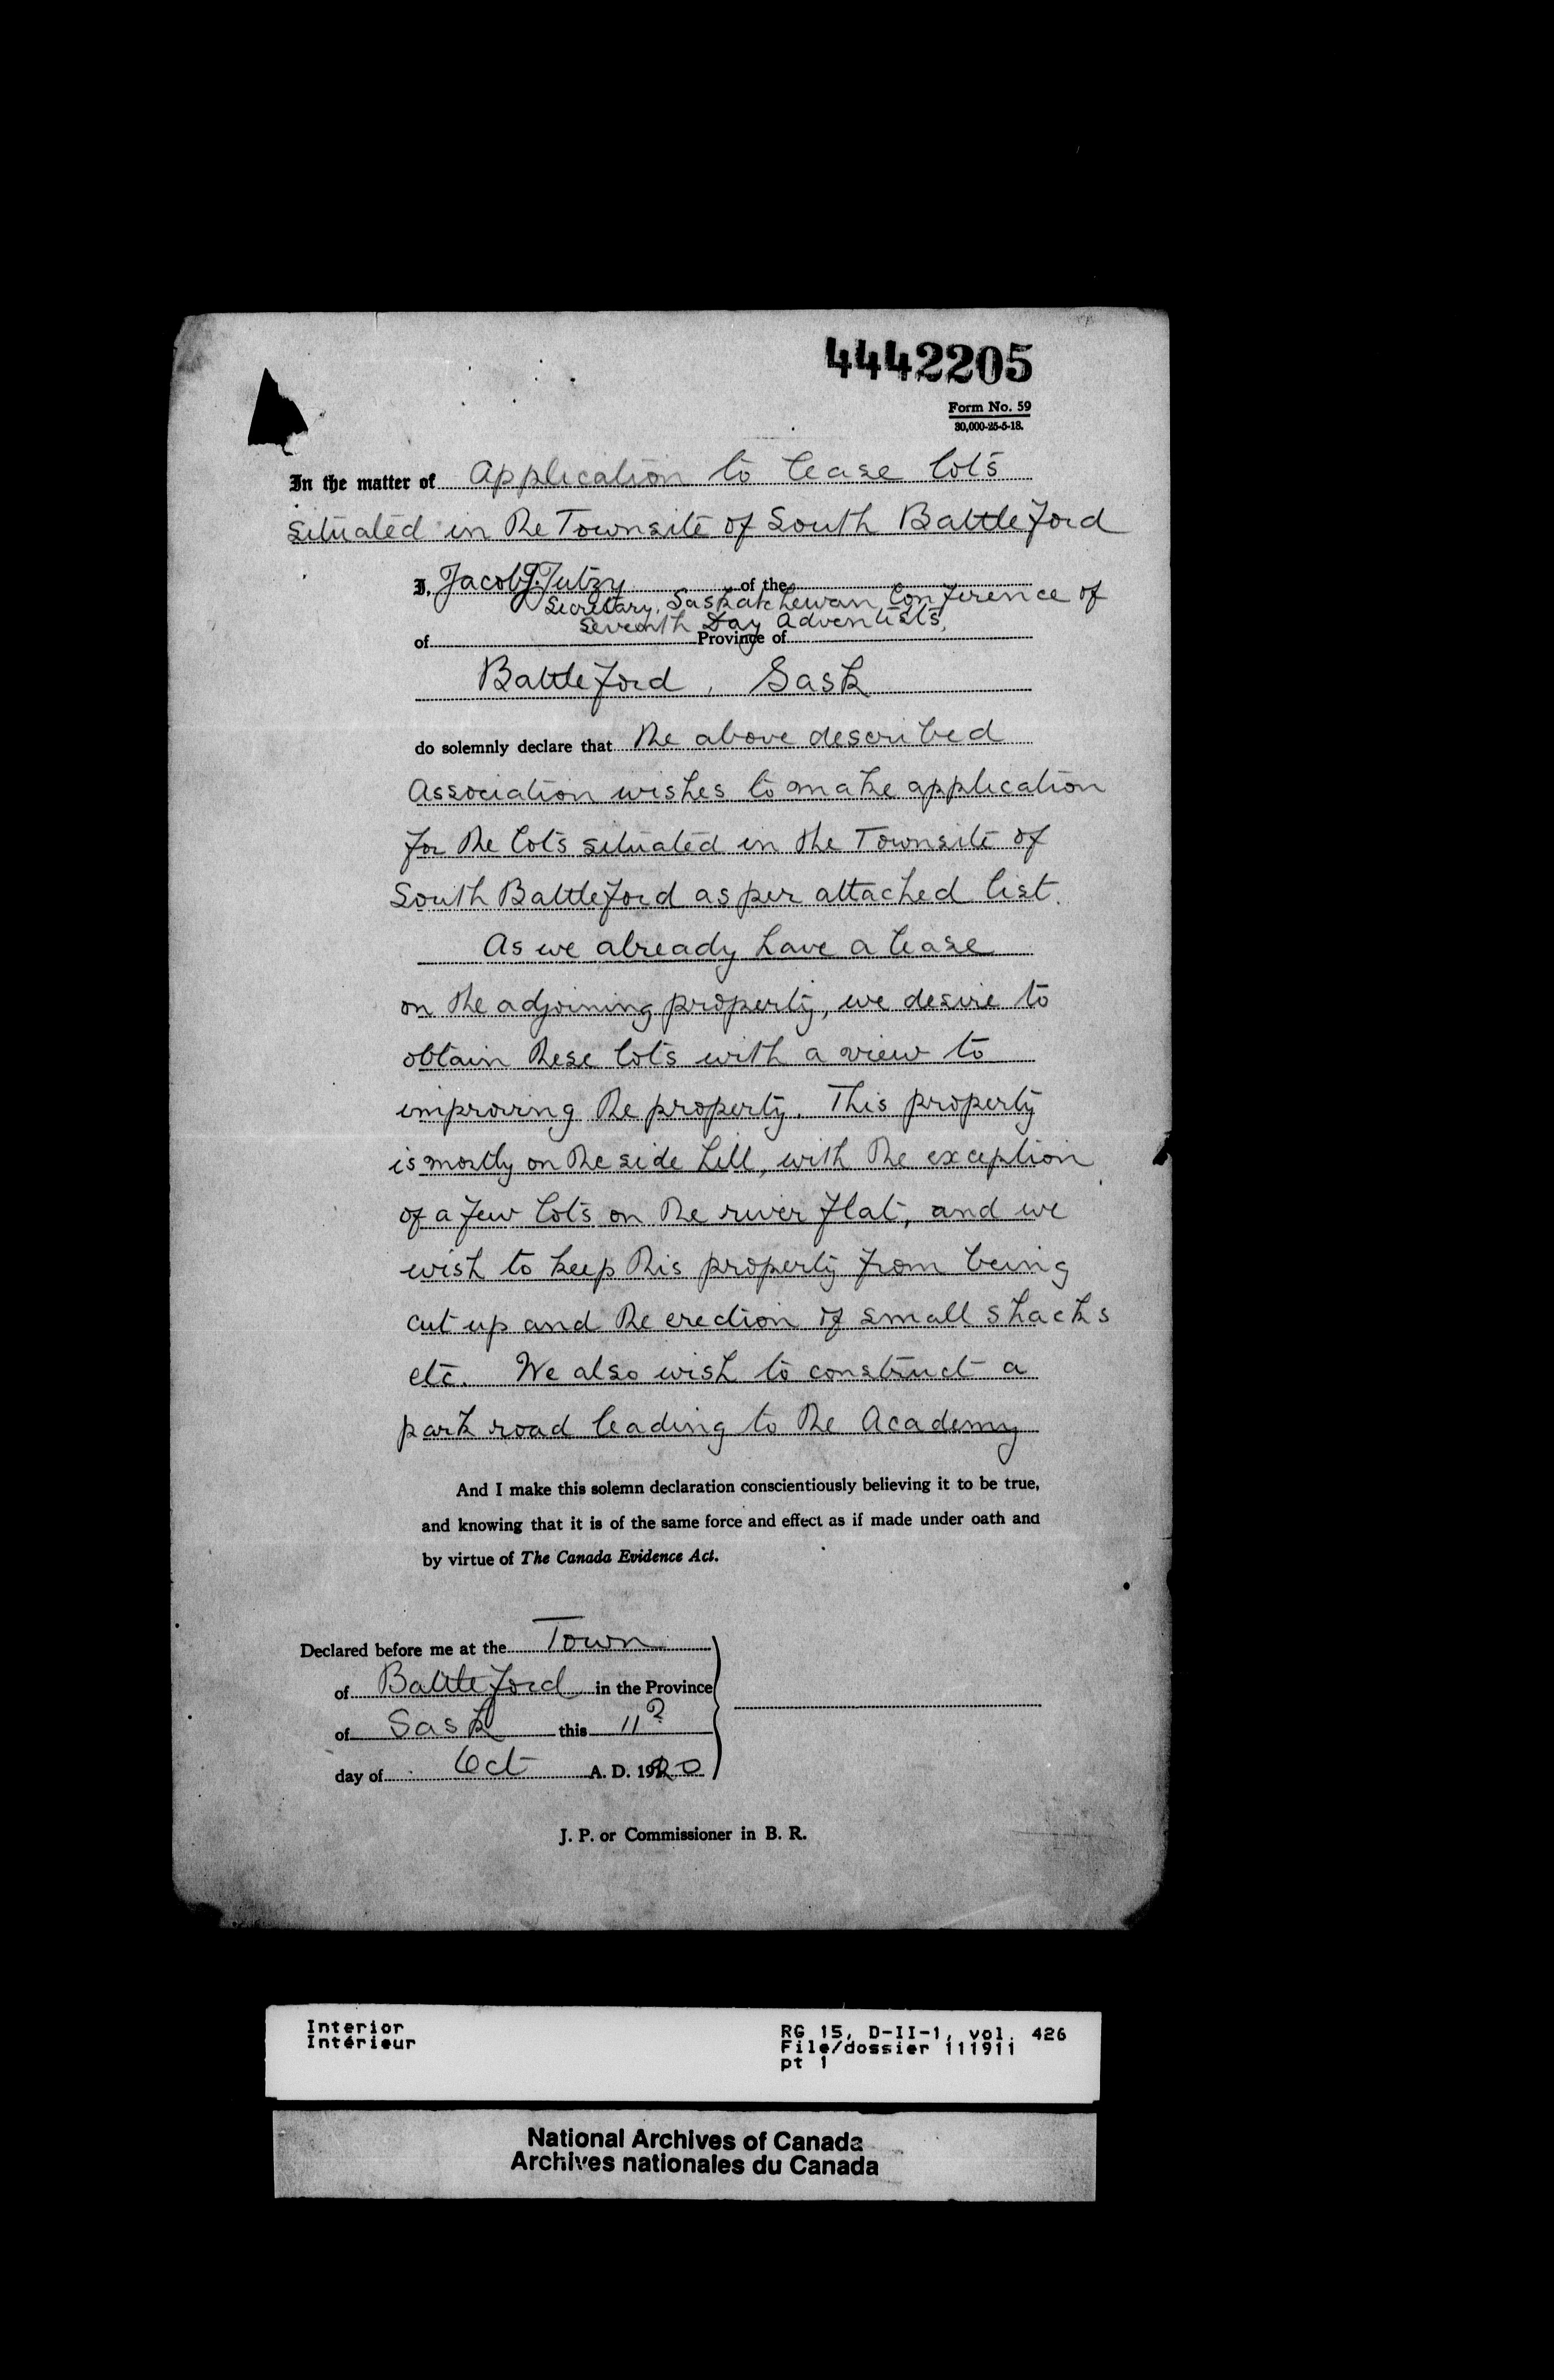 4442205
Form No. 59
30,000-25-5-18.
In the matter of Application to lease lots
situated in the Townsite of South Battleford
I, Jacob J. Tutzy of the
Secretary, Saskatchewan Conference of
Seventh Day Adventists,
of Province of
Battleford, Sask
do solemnly declare that the above described
Association wishes to make application
for the lots situated in the Townsite of
South Battleford as per attached list.
As we already have a lease
on the adjoining property, we desire to
obtain these lots with a view to
improving the property. This property
is mostly on the side hill, with the exception
of a few lots on the river flat, and we
wish to keep this property from being
cut up and the erection of small shacks
etc. We also wish to construct a
park road leading to the Academy
And I make this solemn declaration conscientiously believing it to be true,
and knowing that it is of the same force and effect as if made under oath and
by virtue of The Canada Evidence Act.
Declared before me at the Town
of Battleford in the Province
of Sask this 11
day of Oct A. D. 1920
J. P. or Commissioner in B. R.
Interior
Intérieur
RG 15, D-II-1, vol. 426
File/dossier 111911
pt 1
National Archives of Canada
Archives nationales du Canada